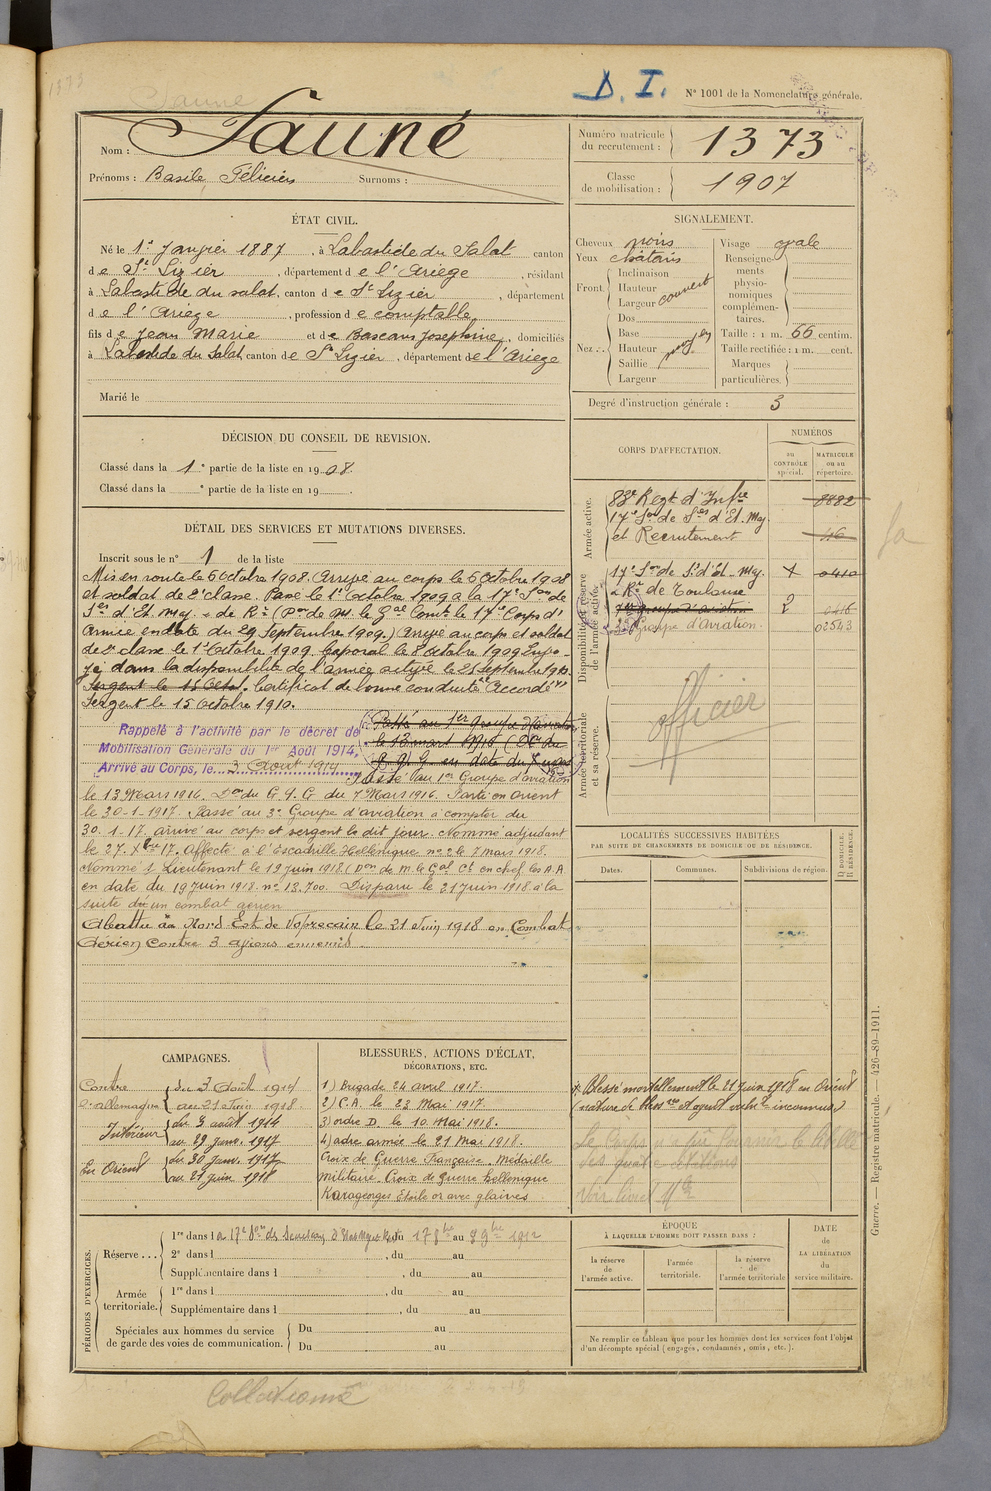 1373
D. I.
N° 1001 de la Nomenclature générale.
Nom : Sauné
Prénoms : Basile Félicien Surnoms :
Numéro matricule du recrutement : 1373
Classe de mobilisation : 1907
ÉTAT CIVIL.
Né le 1er Janvier 1887, à Labastide du Salat canton
de St Lizier, département de l'Ariège, résidant
à Labastide du Salat, canton de St Lizier, département
de l'Ariège, profession de comptable
fils de Jean Marie et de Bascans Josephine, domiciliés
à Labastide du Salat, canton de St Lizier, département de l'Ariège
Marié le
SIGNALEMENT.
Cheveux noirs
Yeux châtains
Front. Inclinaison
Hauteur
Largeur couvert
Nez : Dos
Base
Hauteur moyen
Saillie
Largeur
Visage ovale
Renseignements physionomiques complémentaires.
Taille : 1 m. 66 centim.
Taille rectifiée : 1 m. cent.
Marques particulières.
Degré d'instruction générale : 3
DÉCISION DU CONSEIL DE REVISION.
Classé dans la 1e partie de la liste en 1908.
Classé dans la e partie de la liste en 19 .
DÉTAIL DES SERVICES ET MUTATIONS DIVERSES.
Inscrit sous le n° 1 de la liste
Mis en route le 6 Octobre 1908. Arrivé au corps le 6 Octobre 1908
et soldat de 2e classe. Passé le 1er Octobre 1909 à la 17e Son de
Sres d'Et. Maj. & de Rt (Don de M. le Gal Comt le 17e Corps d'
Armée en date du 29 Septembre 1909.) Arrivé au corps et soldat
de 2e classe le 1er Octobre 1909. Caporal le 8 octobre 1909. Envo-
yé dans la disponibilité de l'armée active le 25 septembre 1910.
Sergent le 15 Octob. Certificat de bonne conduite "Accordé"
Sergent le 15 Octobre 1910.
Rappelé à l'activité par le décret de
Mobilisation Générale du 1er Août 1914,
Arrivé au Corps, le 3 Août 1914
Passé au 1er groupe d'aviation
le 13 mars 1916
G. Q. G. en date du 7 mars
Passé au 1er Groupe d'aviation
le 13 Mars 1916. Don du G Q G du 7 Mars 1916. Parti en Orient
le 30-1-1917. Passé au 3e Groupe d'aviation à compter du
30.1.17. arrivé au corps et sergent le dit jour. Nommé adjudant
le 27. Xbre 17. Affecté à l'Escadrille Hellénique no 2 le 7 mars 1918.
Nommé S/Lieutenant le 19 juin 1918. (Don de M. le Gal Ct en chef les A.A
en date du 19 Juin 1918. no 13.700. Disparu le 21 juin 1918 à la
suite d'un combat aérien
Abattu au Nord Est de le 21 Juin 1918 en Combat
Aérien Contre 3 avions ennemis
CORPS D'AFFECTATION.
NUMÉROS
au CONTRÔLE spécial.
MATRICULE ou au répertoire.
Armée active.
83e Régt d'Infie 8882
17e Son de Sres d'Et. Maj.
et Recrutement 46
Disponibilité et réserve de l'armée active.
17e Son de S. d'Et. Maj. 1 0410
& Rt de Toulouse
1er groupe d'aviation 2 0416
3e Groupe d'Aviation. 02543
Armée territoriale et sa réserve.
officier
LOCALITÉS SUCCESSIVES HABITÉES
PAR SUITE DE CHANGEMENTS DE DOMICILE OU DE RÉSIDENCE.
Dates. Communes. Subdivisions de région. D. DOMICILE. R. RÉSIDENCE.
* Blessé mortellement le 21 juin 1918 en Orient
(nature de bless re et agent vulnt inconnus)
CAMPAGNES.
Contre l'allemagne du 3 Août 1914
au 21 Juin 1918.
Intérieur du 3 août 1914
au 29 janv. 1917
En Orient du 30 Janv. 1917
au 21 juin 1918
BLESSURES, ACTIONS D'ÉCLAT,
DÉCORATIONS, ETC.
1) Brigade 24 avril 1917.
2) C.A. le 23 Mai 1917.
3) ordre D. le 10. Mai 1918.
4) adre armée le 21 Mai 1918.
Croix de Guerre Française. Médaille
militaire. Croix de guerre hellenique
Karageorges Etoile or avec glaives
PÉRIODES D'EXERCICES.
Réserve . . . 1re dans l a 17e Son des Secretaires d'Etat Major du 17 8bre au 8 9bre 1912
2e dans l , du au
Supplémentaire dans l , du au
Armée territoriale. 1re dans l , du au
Supplémentaire dans l , du au
Spéciales aux hommes du service de garde des voies de communication. Du au
Du au
ÉPOQUE
À LAQUELLE L'HOMME DOIT PASSER DANS :
la réserve de l'armée active.
l'armée territoriale.
la réserve de l'armée territoriale
DATE DE LA LIBÉRATION du service militaire.
Ne remplir ce tableau que pour les hommes dont les services font l'objet
d'un décompte spécial (engagés, condamnés, omis, etc.).
Guerre. — Registre matricule. — 426-89-1911.
Collationné